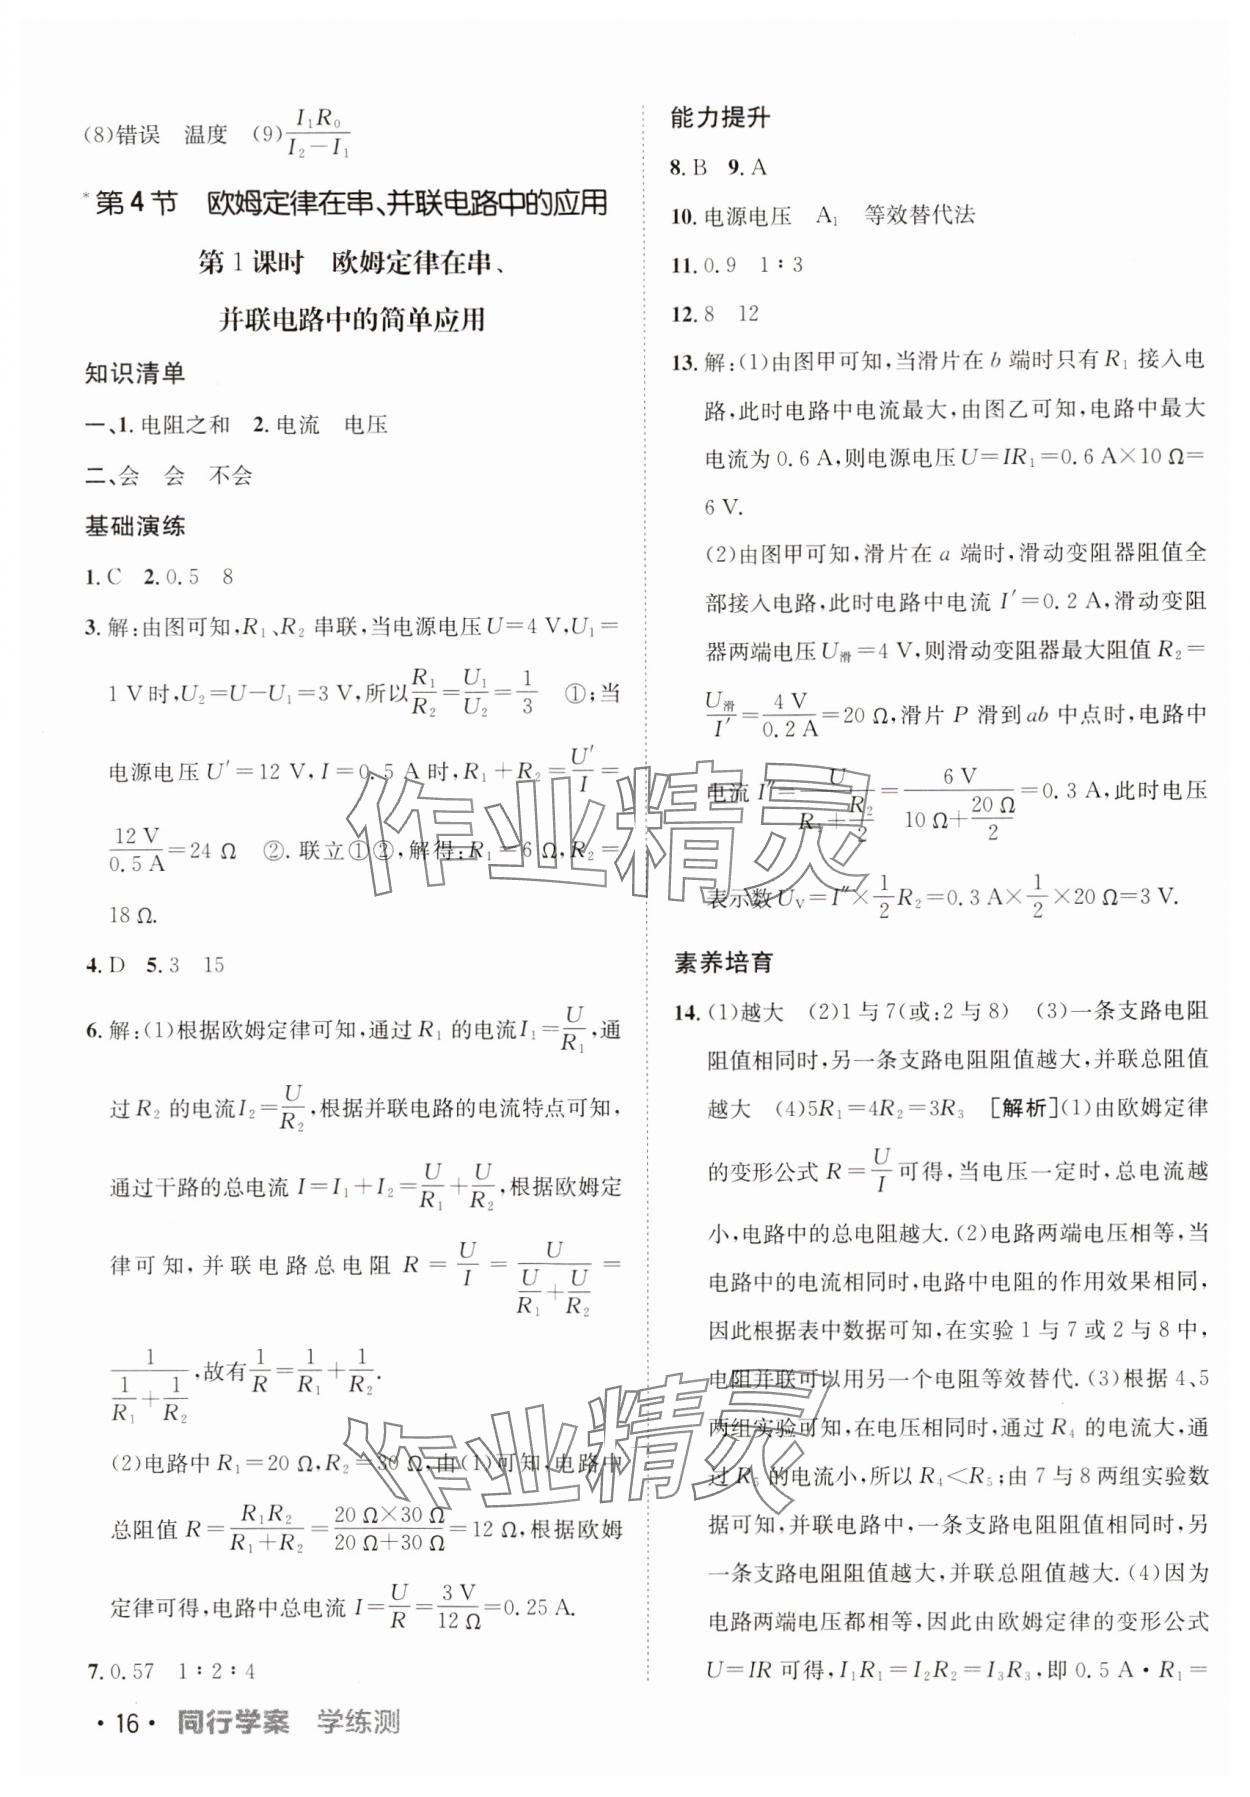 (8)错误　温度　(9) I₁R₀/(I₂－I₁)
*第 4 节　欧姆定律在串、并联电路中的应用
第 1 课时　欧姆定律在串、
并联电路中的简单应用
知识清单
一、1. 电阻之和　2. 电流　电压
二、会　会　不会
基础演练
1. C　2. 0.5　8
3. 解:由图可知,R₁、R₂ 串联,当电源电压 U＝4 V,U₁＝
1 V 时,U₂＝U－U₁＝3 V,所以 R₁/R₂＝U₁/U₂＝1/3　①;当
电源电压 U′＝12 V,I＝0.5 A 时,R₁＋R₂＝U′/I＝
12 V/0.5 A＝24 Ω　②. 联立①②,解得:R₁＝6 Ω,R₂＝
18 Ω.
4. D　5. 3　15
6. 解:(1)根据欧姆定律可知,通过 R₁ 的电流I₁＝U/R₁,通
过 R₂ 的电流 I₂＝U/R₂,根据并联电路的电流特点可知,
通过干路的总电流 I＝I₁＋I₂＝U/R₁＋U/R₂,根据欧姆定
律可知,并联电路总电阻 R＝U/I＝U/(U/R₁＋U/R₂)＝
1/(1/R₁＋1/R₂),故有 1/R＝1/R₁＋1/R₂.
(2)电路中 R₁＝20 Ω,R₂＝30 Ω,由(1)可知,电路中
总阻值 R＝R₁R₂/(R₁＋R₂)＝(20 Ω×30 Ω)/(20 Ω＋30 Ω)＝12 Ω,根据欧姆
定律可得,电路中总电流 I＝U/R＝3 V/12 Ω＝0.25 A.
7. 0.57　1∶2∶4
·16·　同行学案　学练测
能力提升
8. B　9. A
10. 电源电压　A₁　等效替代法
11. 0.9　1∶3
12. 8　12
13. 解:(1)由图甲可知,当滑片在 b 端时只有 R₁ 接入电
路,此时电路中电流最大,由图乙可知,电路中最大
电流为 0.6 A,则电源电压 U＝IR₁＝0.6 A×10 Ω＝
6 V.
(2)由图甲可知,滑片在 a 端时,滑动变阻器阻值全
部接入电路,此时电路中电流 I′＝0.2 A,滑动变阻
器两端电压 U滑＝4 V,则滑动变阻器最大阻值 R₂＝
U滑/I′＝4 V/0.2 A＝20 Ω,滑片 P 滑到 ab 中点时,电路中
电流 I″＝U/(R₁＋R₂/2)＝6 V/(10 Ω＋20 Ω/2)＝0.3 A,此时电压
表示数 U_V＝I″×1/2R₂＝0.3 A×1/2×20 Ω＝3 V.
素养培育
14. (1)越大　(2)1 与 7(或:2 与 8)　(3)一条支路电阻
阻值相同时,另一条支路电阻阻值越大,并联总阻值
越大　(4)5R₁＝4R₂＝3R₃　[解析](1)由欧姆定律
的变形公式 R＝U/I 可得,当电压一定时,总电流越
小,电路中的总电阻越大.(2)电路两端电压相等,当
电路中的电流相同时,电路中电阻的作用效果相同,
因此根据表中数据可知,在实验 1 与 7 或 2 与 8 中,
电阻并联可以用另一个电阻等效替代.(3)根据 4、5
两组实验可知,在电压相同时,通过 R₄ 的电流大,通
过 R₅ 的电流小,所以 R₄＜R₅;由 7 与 8 两组实验数
据可知,并联电路中,一条支路电阻阻值相同时,另
一条支路电阻阻值越大,并联总阻值越大.(4)因为
电路两端电压都相等,因此由欧姆定律的变形公式
U＝IR 可得,I₁R₁＝I₂R₂＝I₃R₃,即 0.5 A·R₁＝
作业精灵
作业精灵